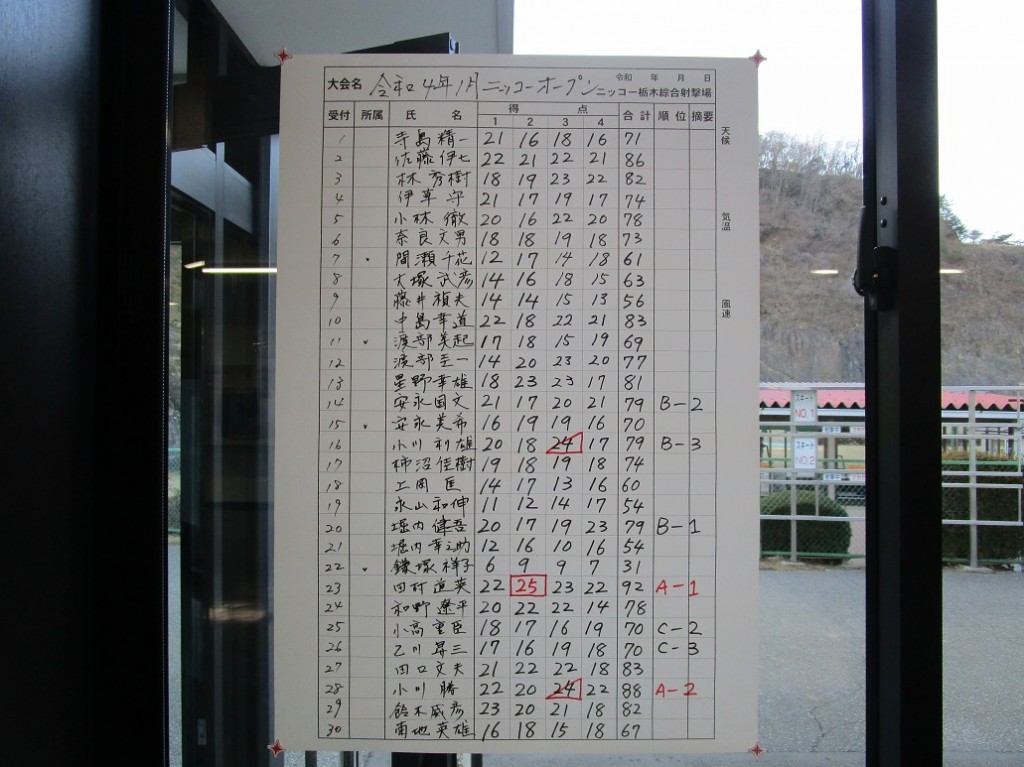 大会名 令和4年1月ニッコーオープン 令和 年 月 日
ニッコー栃木綜合射撃場
受付 所属 氏名 得点 1 2 3 4 合計 順位 摘要
1 寺島精一 21 16 18 16 71
2 佐藤伊七 22 21 22 21 86
3 林秀樹 18 19 23 22 82
4 伊草守 21 17 19 17 74
5 小林徹 20 16 22 20 78
6 奈良文男 18 18 19 18 73
7 間瀬千花 12 17 14 18 61
8 大塚武彦 14 16 18 15 63
9 藤井禎夫 14 14 15 13 56
10 中島幸道 22 18 22 21 83
11 渡部美起 17 18 15 19 69
12 渡部圭一 14 20 23 20 77
13 星野幸雄 18 23 23 17 81
14 安永国文 21 17 20 21 79 B-2
15 安永美希 16 19 19 16 70
16 小川利雄 20 18 24 17 79 B-3
17 柿沼佳樹 19 18 19 18 74
18 上岡匡 14 17 13 16 60
19 永山和伸 11 12 14 17 54
20 堀内健吾 20 17 19 23 79 B-1
21 堀内幸之助 12 16 10 16 54
22 鎌塚祥子 6 9 9 7 31
23 田村道英 22 25 23 22 92 A-1
24 和野遼平 20 22 22 14 78
25 小高重臣 18 17 16 19 70 C-2
26 乙川昇三 17 16 19 18 70 C-3
27 田口文夫 21 22 22 18 83
28 小川勝 22 20 24 22 88 A-2
29 鈴木威彦 23 20 21 18 82
30 菊地英雄 16 18 15 18 67
天候
気温
風速
スキート
NO.1
スキート
NO.2